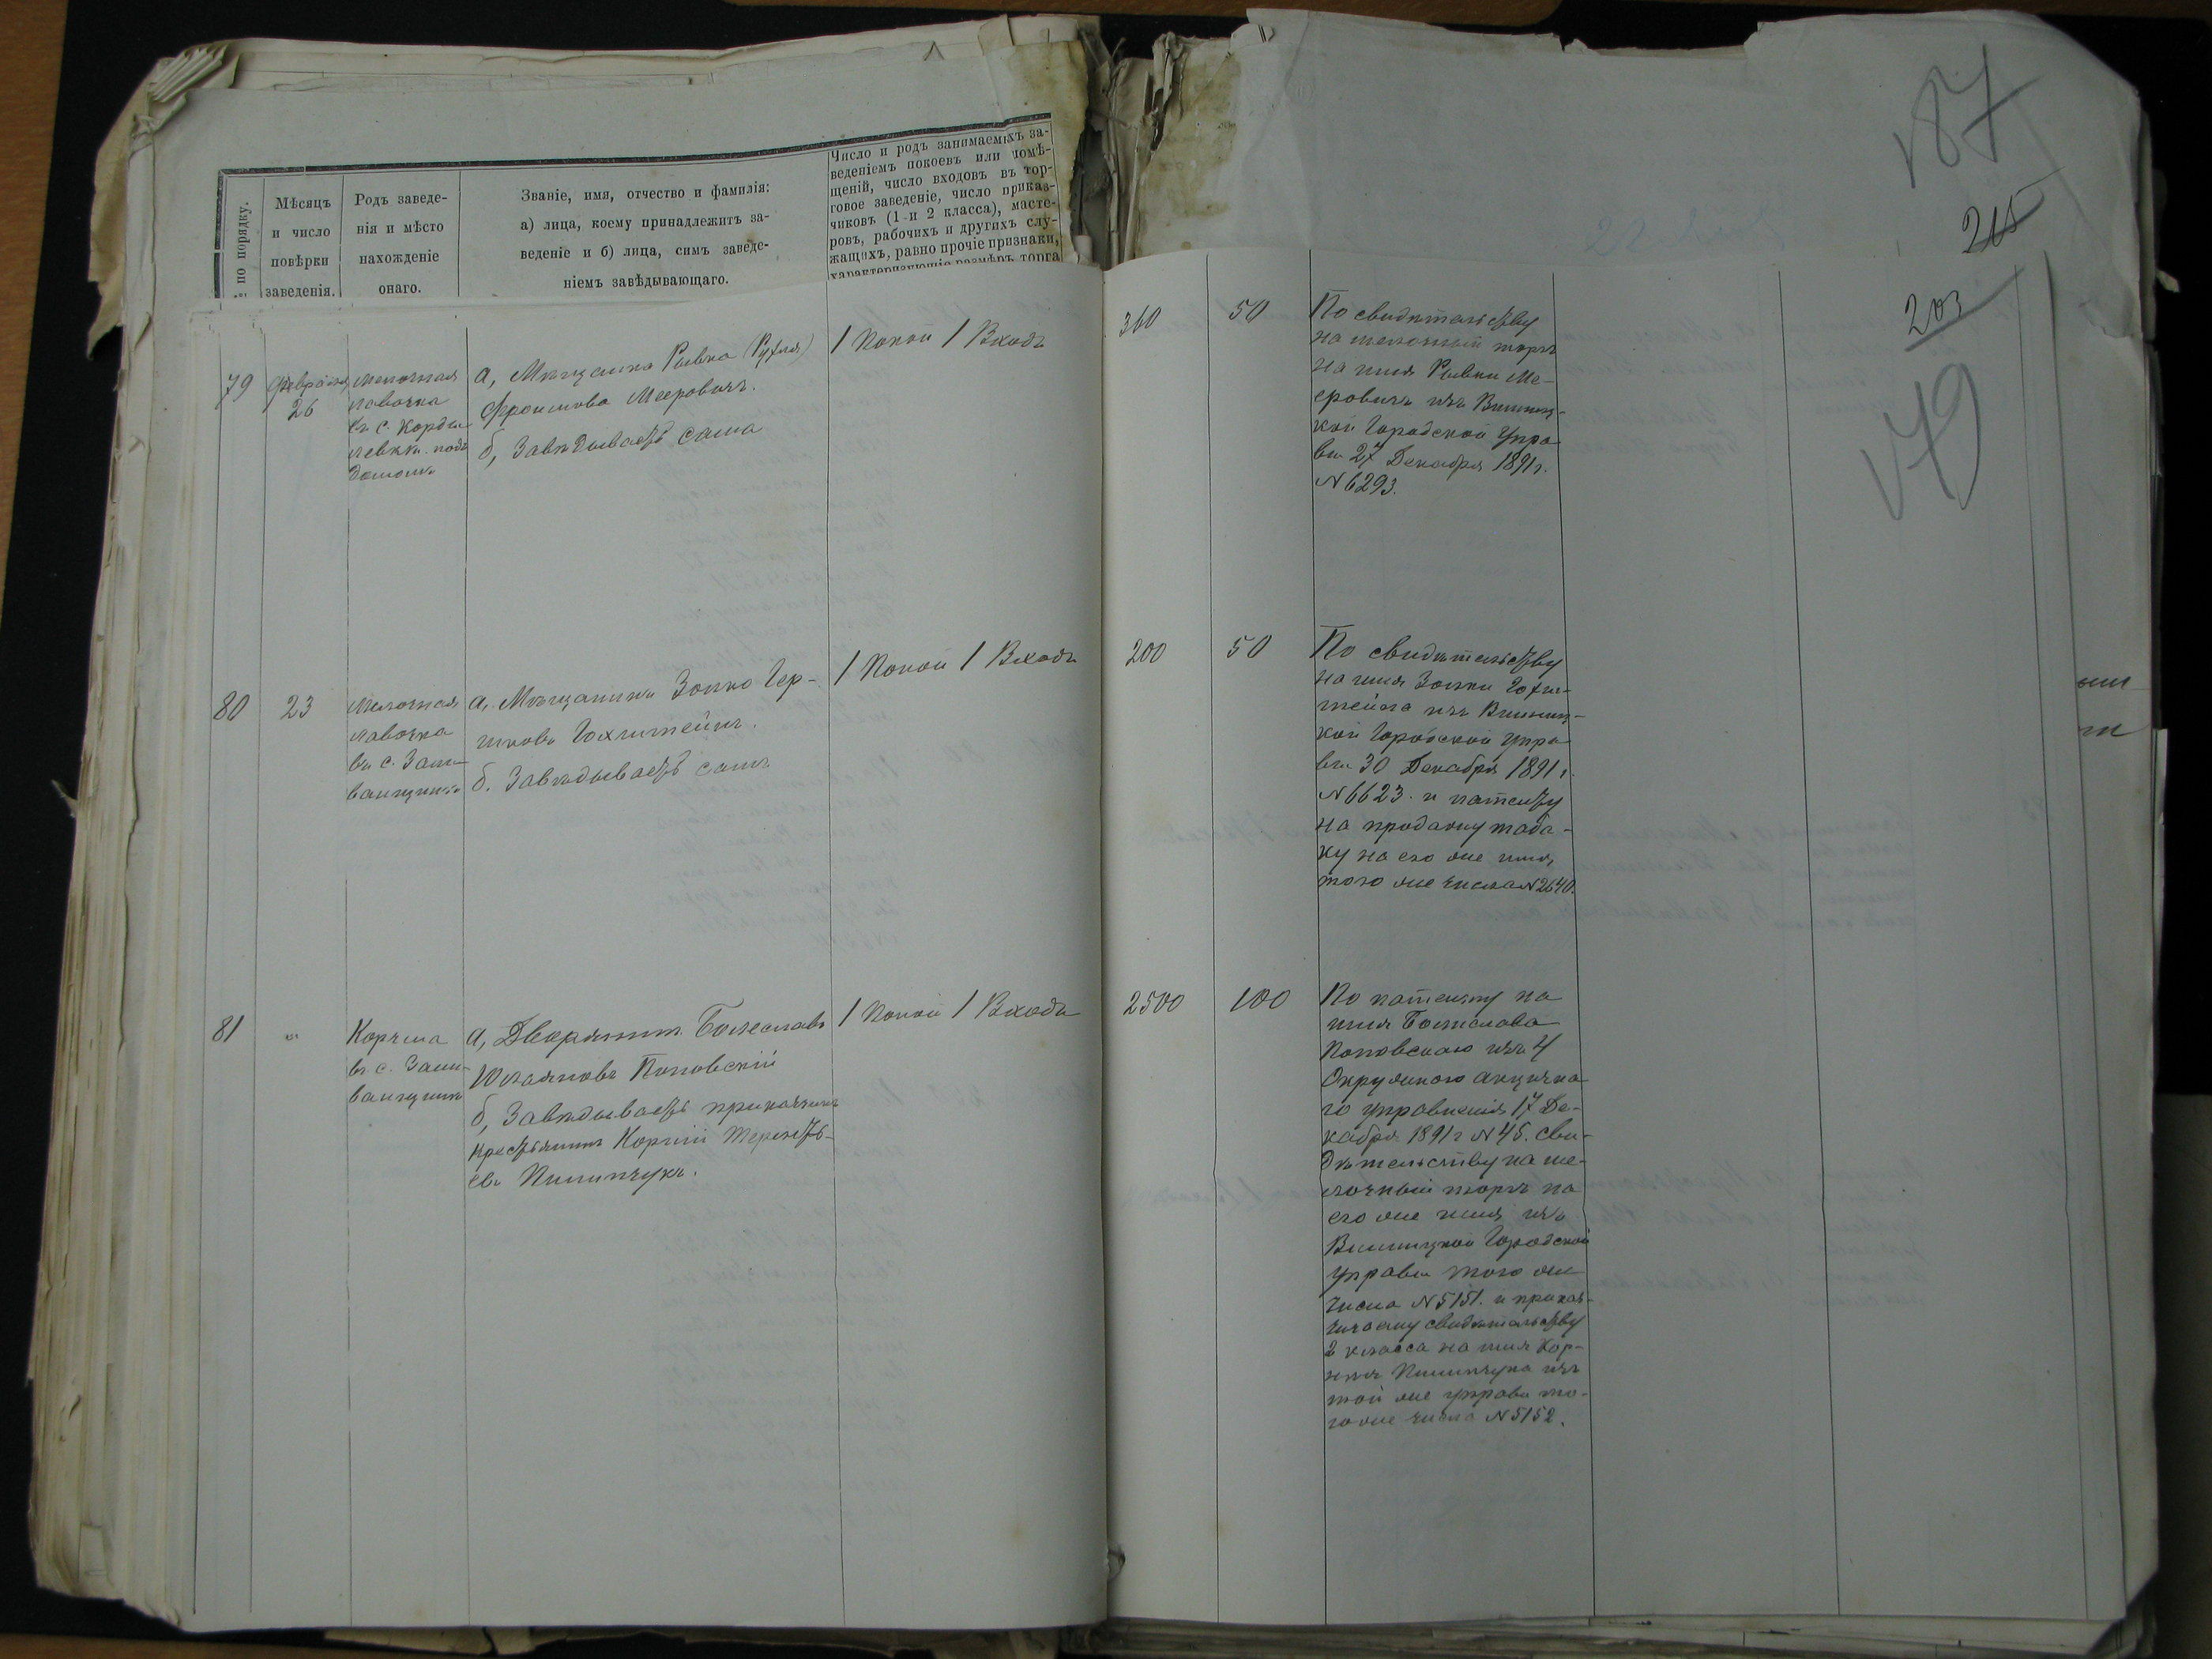 № по порядку.
Мѣсяцъ
и число
повѣрки
заведенія.
Родъ заведе-
нія и мѣсто
нахожденіе
онаго.
Званіе, имя, отчество и фамилія:
а) лица, коему принадлежитъ за-
веденіе и б) лица, симъ заведе-
ніемъ завѣдывающаго.
Число и родъ занимаемыхъ за-
веденіемъ покоевъ или помѣ-
щеній, число входовъ въ тор-
говое заведеніе, число приказ-
чиковъ (1 и 2 класса), масте-
ровъ, рабочихъ и другихъ слу-
жащихъ, равно прочіе признаки,
характеризующіе размѣръ торга
187
215
203
179
79
Февраля
26
мелочная
лавочка
въ с. Корды-
левкѣ. подъ
домомъ
а, Мѣщанка Ривка (Рухля)
Фроимова Мееровичъ.
б, Завѣдываетъ сама
1 Покой 1 Входъ
360
50
По свидѣтельству
на мелочный торгъ
на имя Ривки Ме-
еровичъ изъ Винниц-
кой Городской Упра
вы 27 Декабря 1891 г.
N 6293.
80
23
Мелочная
лавочка
въ с. Зали-
ванщинѣ
а, Мѣщанинъ Зопко Гер-
шковъ Гохштейнъ.
б. Завѣдываетъ самъ
1 Покой 1 Входъ
200
50
По свидѣтельству
на имя Зопки Гохш-
тейна изъ Винниц-
кой Городской Упра
вы 30 Декабря 1891 г.
N 6623. и патенту
на продажу таба-
ку на его же имя,
того же числа N 2640.
81
"
Корчма
въ с. Зали-
ванщинѣ
а, Дворянинъ Болеславъ
Юліановъ Поповскій
б, Завѣдываетъ приказчикъ
крестьянинъ Корній Терентъ-
евъ Пилипчукъ.
1 Покой 1 Входъ
2500
100
По патенту на
имя Болеслава
Поповскаго изъ 4
Окружного акцизна
го управленія 17 Де-
кабря 1891 г N 45. сви-
дѣтельству на ме-
лочный торгъ на
его же имя изъ
Винницкой Городской
Управы того же
числа N 5151. и приказ-
чичьему свидѣтельству
2 класса на имя Кор-
нія Пилипчука изъ
той же управы то-
го же числа N 5152.